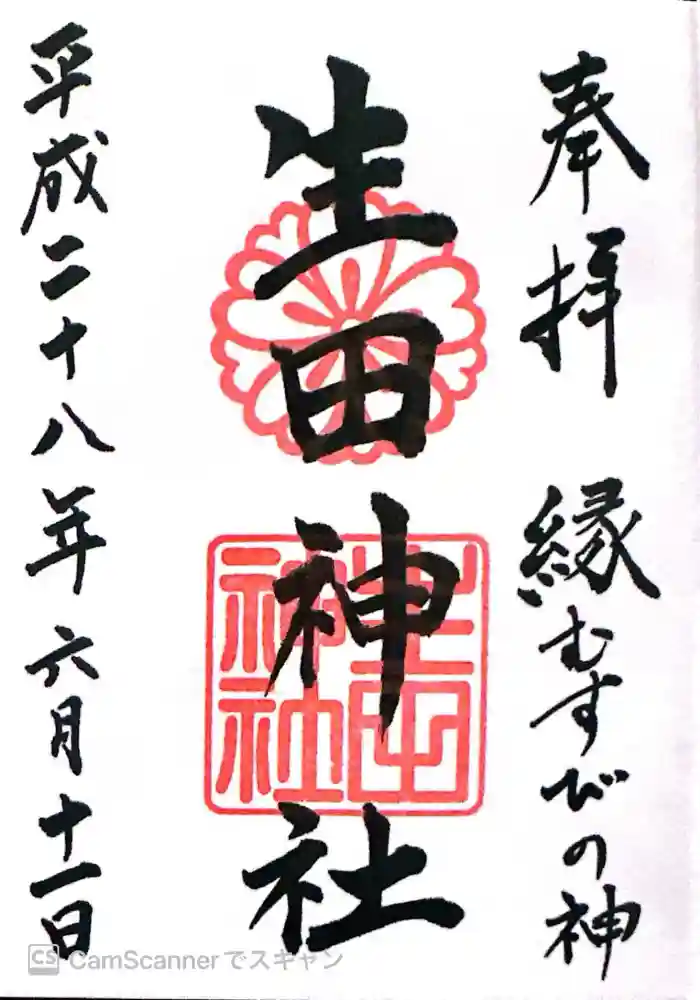 奉拝 縁むすびの神
生田神社
生田神社
平成二十八年六月十一日
CS CamScannerでスキャン